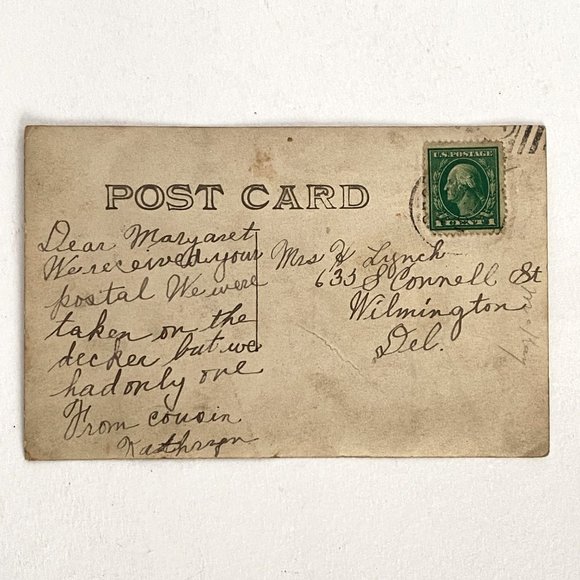 U.S. POSTAGE
1 CENT 1
POST CARD
Dear Margaret
We received your
postal We were
taken on the
decker but we
had only one
From cousin
Kathryn
Mrs H Lynch
635 S Connell St
Wilmington
Del.